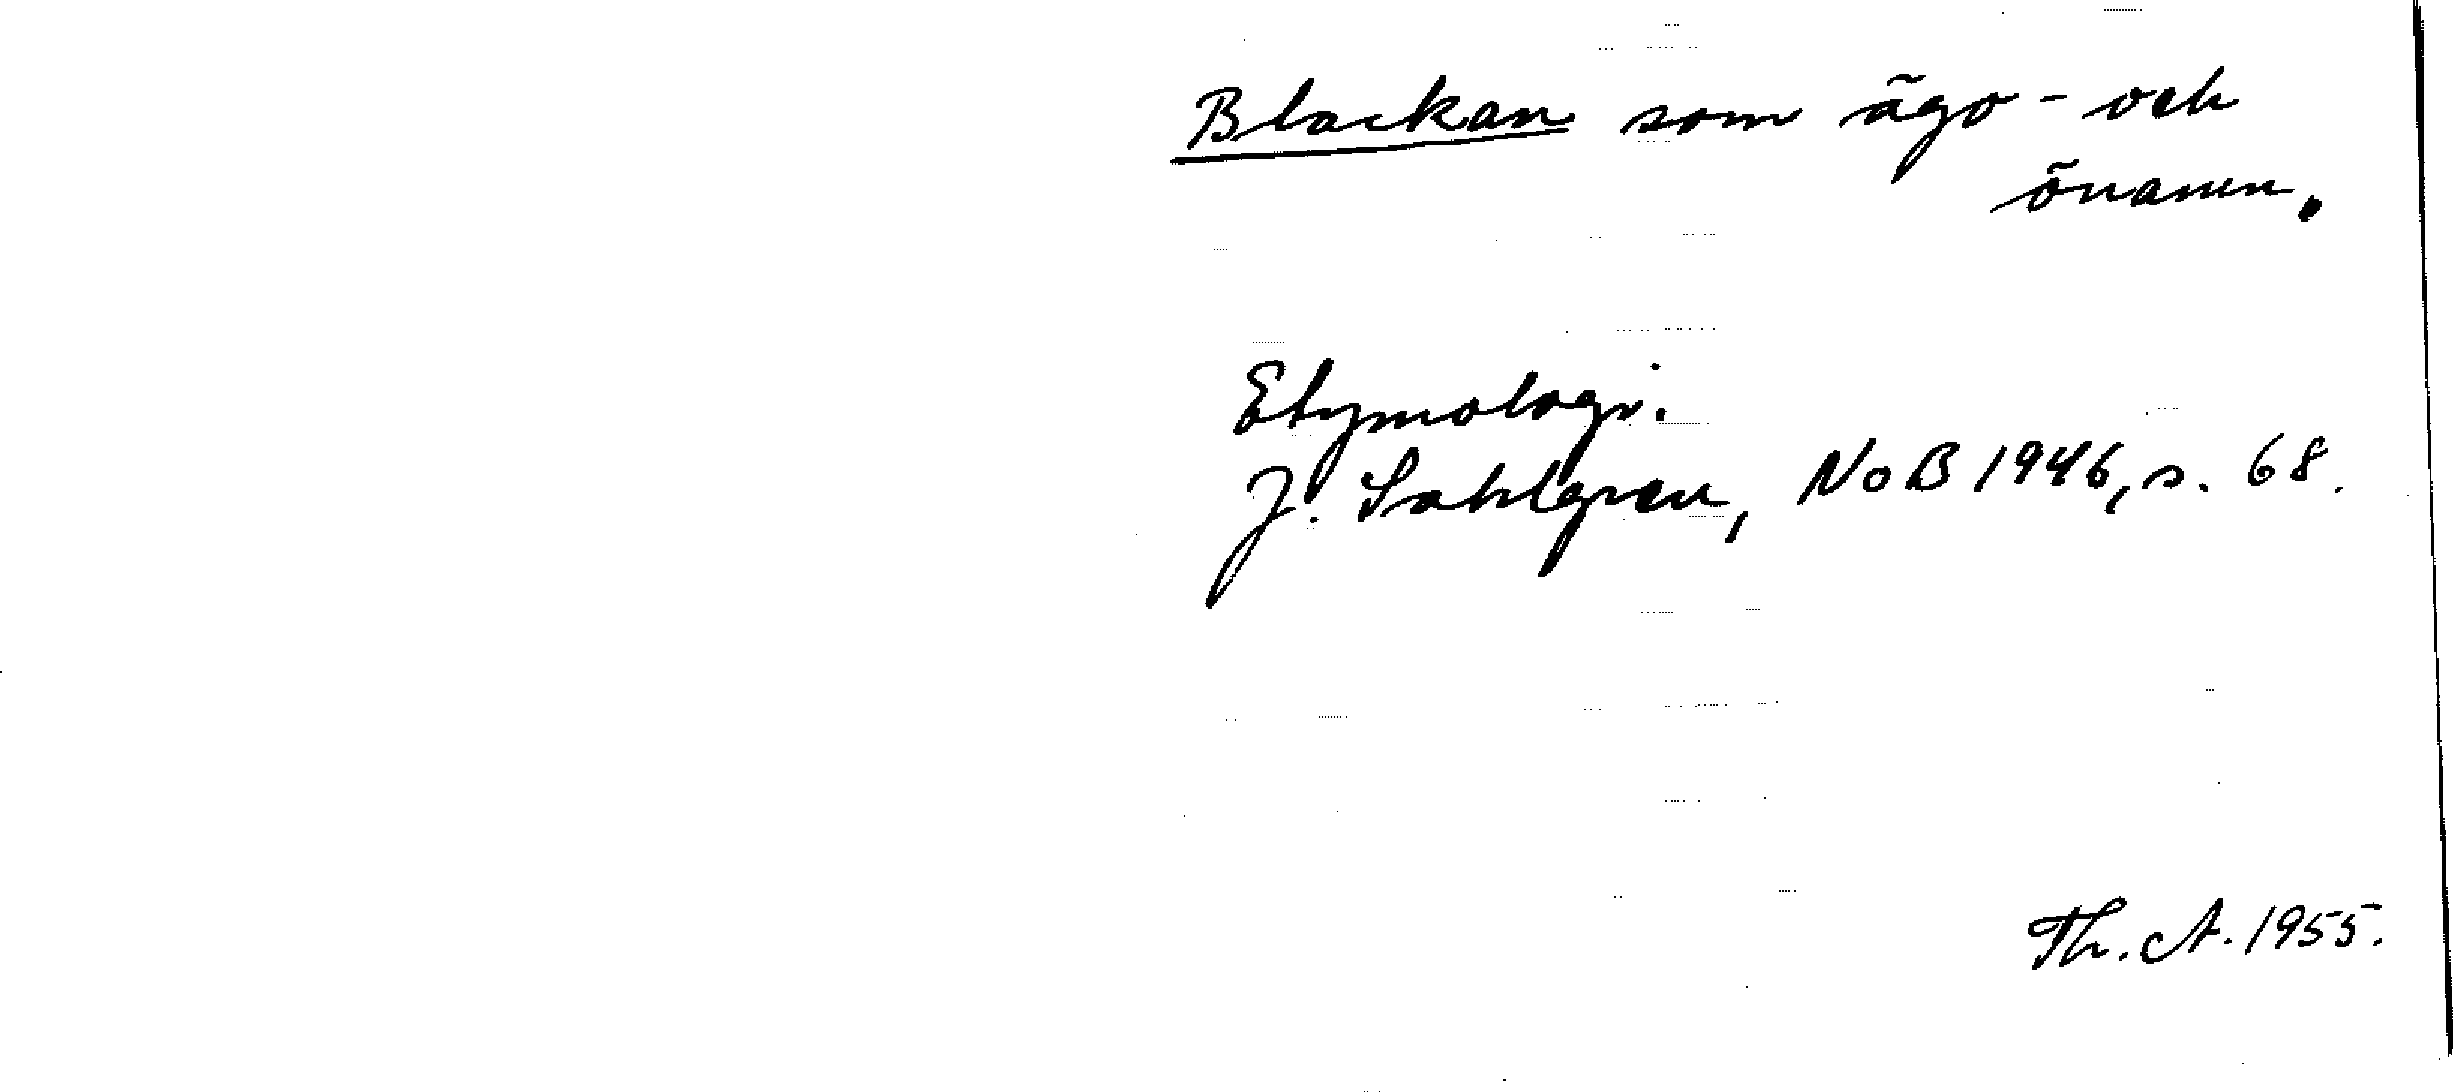 Blackan som ägo- och
önamn.
Etymologi.
J. Sahlgren, NoB 1946, s. 68.
Th. A. 1955.